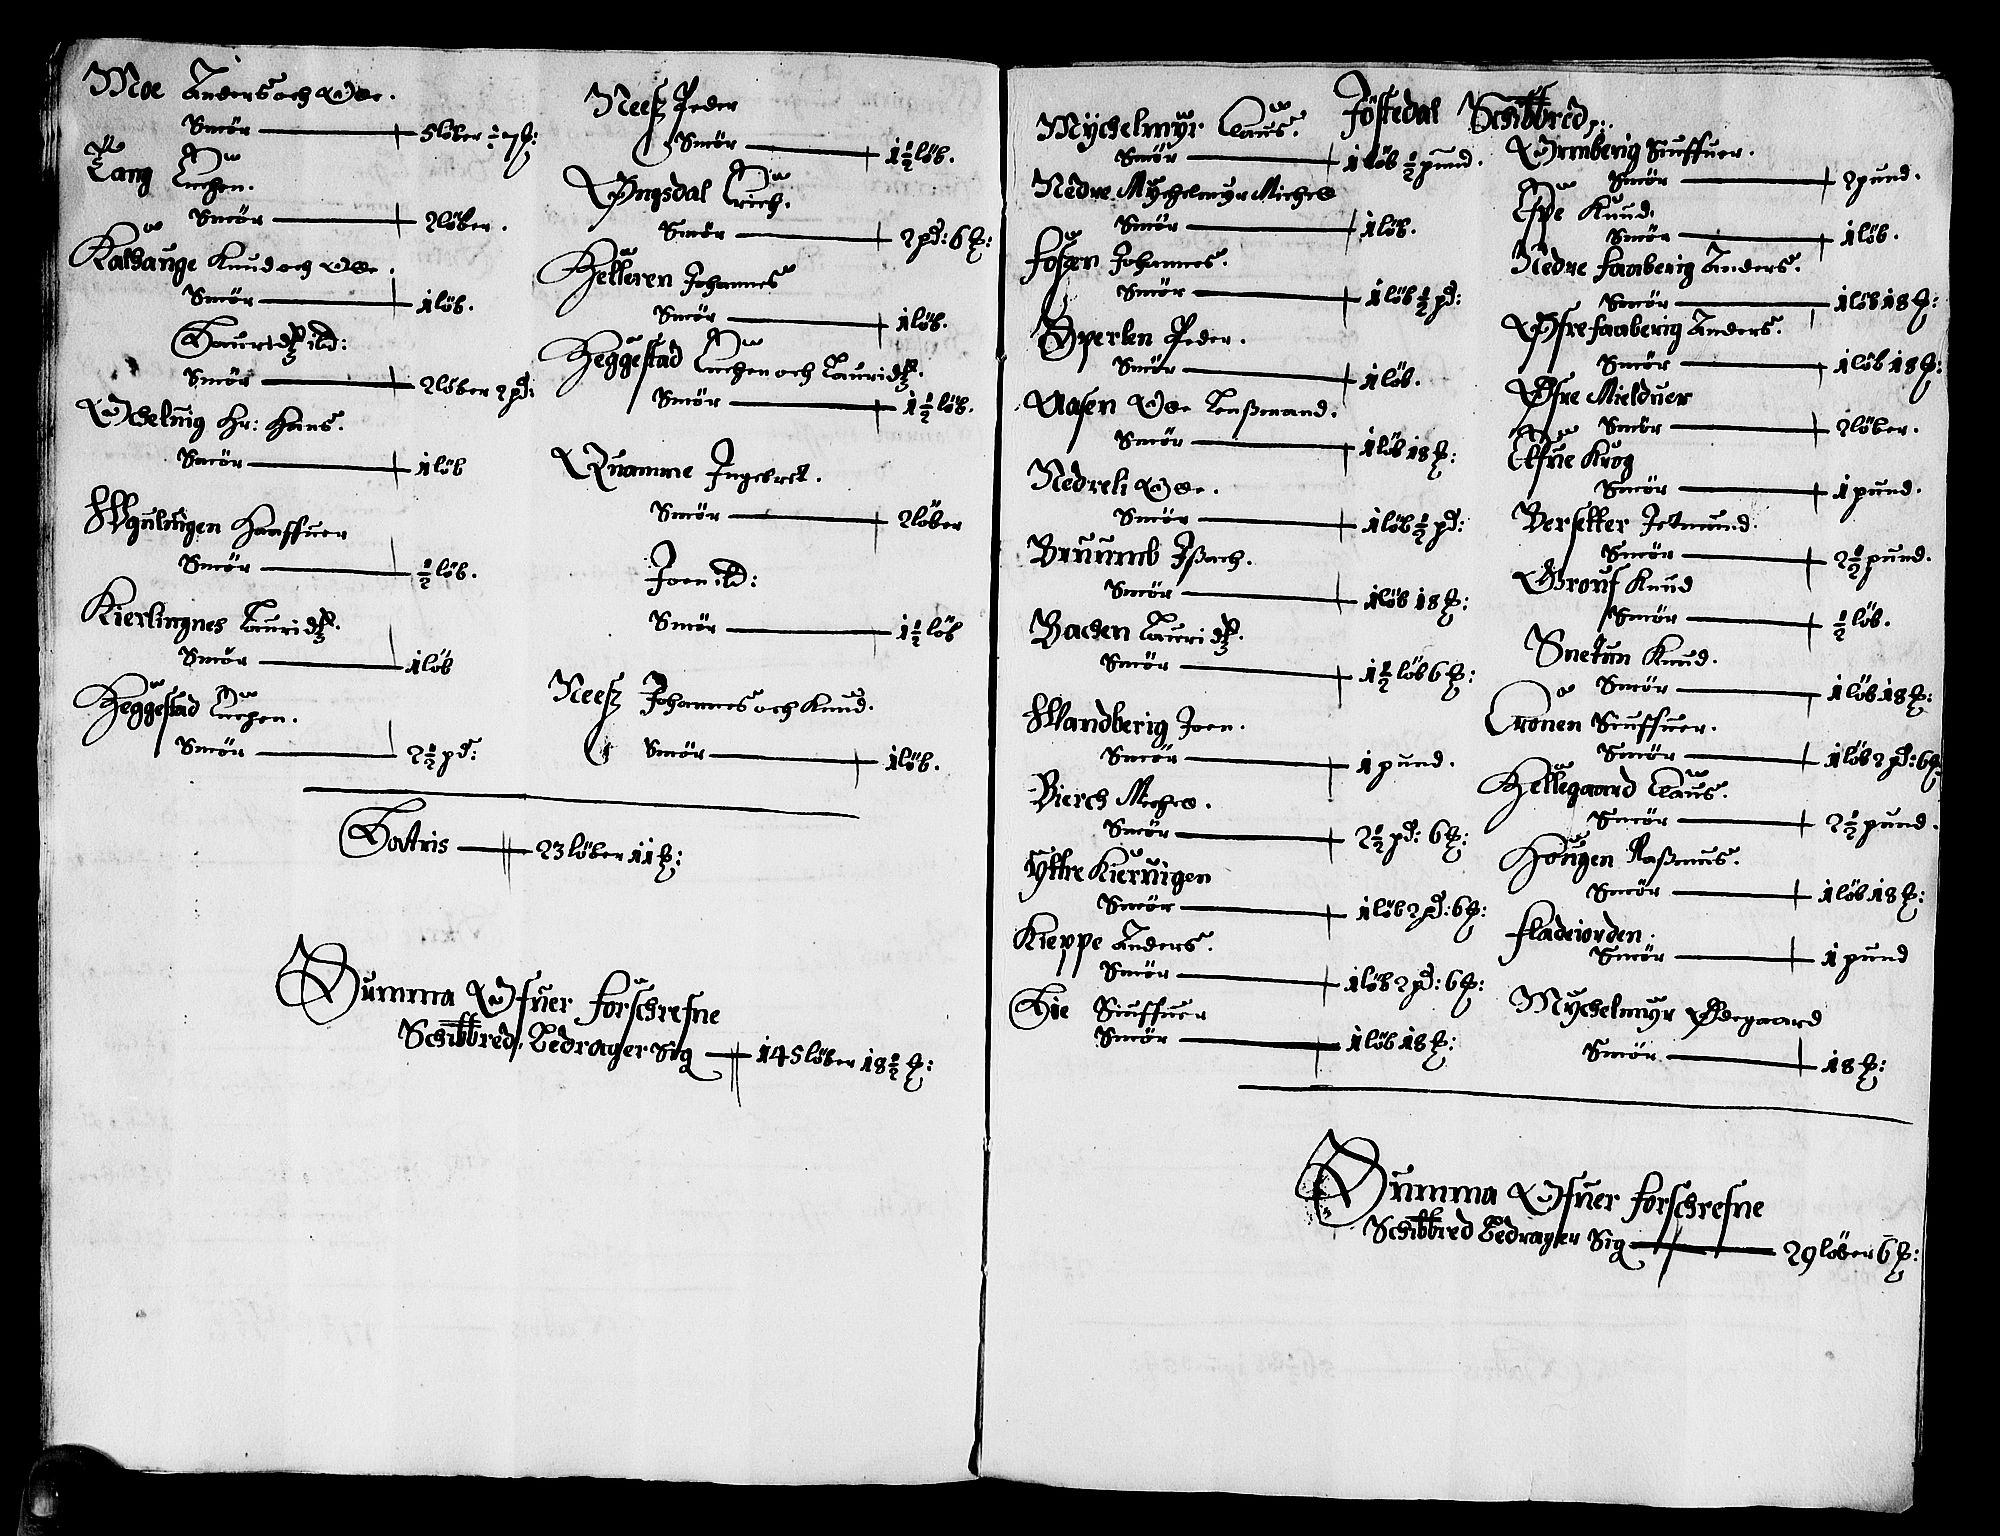 Moe Anders och Ole.
Smör — 5 löber ÷ 7 ℔:
Tang
Smör — 2 löber.
Kalhauge Knud och Ole.
Smör — 1 löb.
Lauridtz ibd:
Smör — 2 löber 2 pd:
Ohelnig Hr: Hans.
Smör — 1 löb
Haaffuer
Smör — ½ löb.
Kierlingnes Lauridtz.
Smör — 1 löb
Heggestad
Smör — 2½ pd:
Neesz Peder
Smör — 1½ löb.
Yngsdal Erich.
Smör — 2 pd: 6 ℔:
Helleren Johannes
Smör — 1 löb.
Heggestad och Lauridtz.
Smör — 1½ löb.
Quamme Ingebret.
Smör — 2 löber
Joen ibd:
Smör — 1½ löb
Neesz Johannes och Knud.
Smör — 1 löb.
Latris — 23 löber 11 ℔:
Summa Ofuer forschrefne
Schibbred, Bedrager Sig — 145 löber 18½ ℔:
Jöstedal Schibbred
Mÿchelmÿr Claus.
Smör — 1 löb ½ pund.
Nedre Mÿchelmÿr Michel
Smör — 1 löb.
Fossen Johannes.
Smör — 1 löb ½ pd:
Sperlen Peder.
Smör — 1 löb.
Aasen Ole Lenßmand.
Smör — 1 löb 18 ℔:
Nedreli Ole.
Smör — 1 löb ½ pd:
Bruumb Ißach.
Smör — 1 löb 18 ℔:
Bachen Lauridtz.
Smör — 1½ löb 6 ℔:
Wandberig Joen.
Smör — 1 pund.
Bierch Michel.
Smör — 2½ pd: 6 ℔:
Yttre Kieruigen
Smör — 1 löb 2 pd: 6 ℔:
Kieppe Anders.
Smör — 1 löb 2 pd: 6 ℔:
Lie Siuffuer
Smör — 1 löb 18 ℔:
Ormberig Siuffuer.
Smör — 2 pund.
Espe Knud.
Smör — 1 löb.
Nedre Faaberig Anders.
Smör — 1 löb 18 ℔:
Øfre Faaberig Anders.
Smör — 1 löb 18 ℔:
Øfre Mielduer
Smör — 2 löber.
Elfue Krog
Smör — 1 pund.
Bersetter Jetmund.
Smör — 2½ pund.
Grouf Knud
Smör — ½ löb.
Snetun Knud.
Smör — 1 löb 18 ℔:
Cronen Siuffuer.
Smör — 1 löb 2 pd: 6 ℔:
Hellegaard Claus.
Smör — 2½ pund.
Hougen Raßmus.
Smör — 1 löb 18 ℔:
Fladeiorden.
Smör — 1 pund
Mÿchelmÿr Ødegaard
Smör — 18 ℔:
Summa Ofuer forschrefne
Schibbred Bedrager Sig — 29 löber 6 ℔: